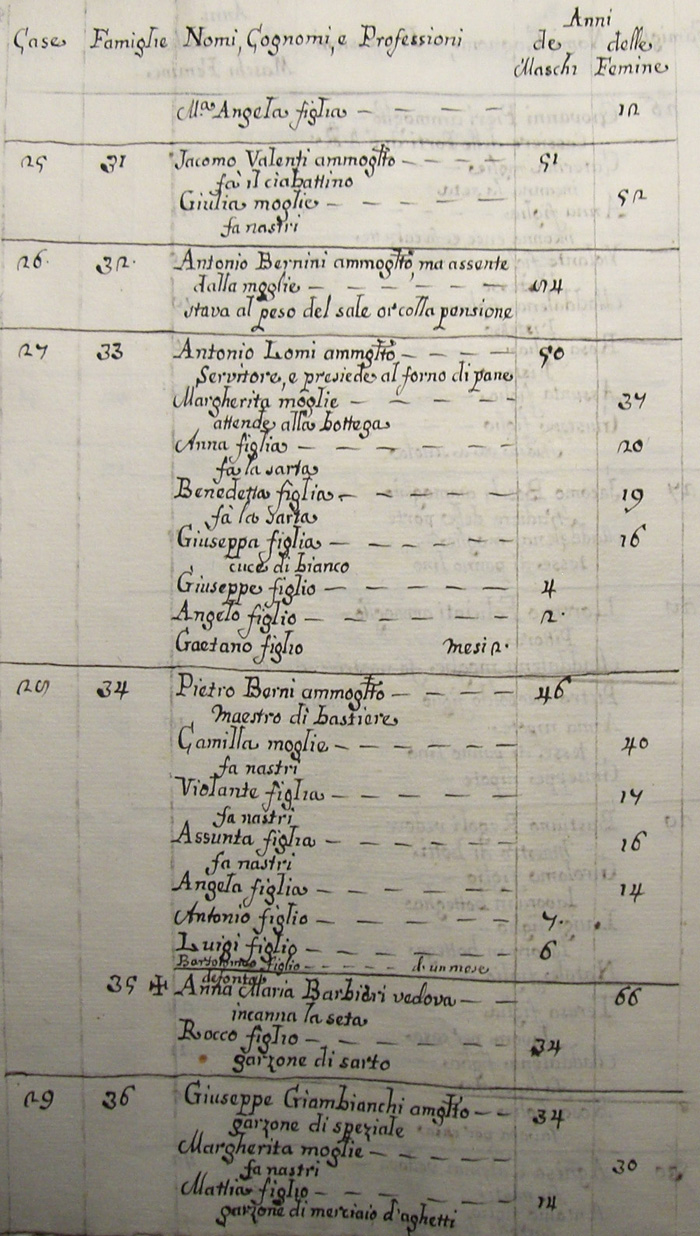 Anni
Case Famiglie Nomi, Cognomi, e Professioni de delle
Maschi Femine
M.a Angela figlia — — — — 12
25 31 Jacomo Valenti ammogto — — — — 51
fà il ciabattino
Giulia moglie — — — — — 52
fa nastri
26. 32. Antonio Bernini ammogto, ma assente
dalla moglie — — — — — 74
stava al peso del sale or colla pensione
27 33 Antonio Lomi ammgto — — — — 50
Servitore, e presiede al forno di pane
Margherita moglie — — — — 37
attende alla bottega
Anna figlia — — — — — 20
fà la sarta
Benedetta figlia — — — — 19
fà la sarta
Giuseppa figlia — — — — — 16
cuce di bianco
Giuseppe figlio — — — — — 4
Angelo figlio — — — — — 2.
Gaetano figlio mesi 2.
28 34 Pietro Berni ammogto — — — — 46
Maestro di bastiere
Camilla moglie — — — — — 40
fa nastri
Violante figlia — — — — — 17
fa nastri
Assunta figlia — — — — — 16
fa nastri
Angela figlia — — — — — 14
Antonio figlio — — — — — 7.
Luigi figlio — — — — — 6
Bartolomeo figlio — — — — d'un mese
defonta
35 ✠ Anna Maria Barbieri vedova — — 66
incanna la seta
Rocco figlio — — — — — 34
garzone di sarto
29 36 Giuseppe Giambianchi amgto — — 34
garzone di speziale
Margherita moglie — — — — 30
fa nastri
Mattia figlio — — — — — 14
garzone di merciaio d'aghetti